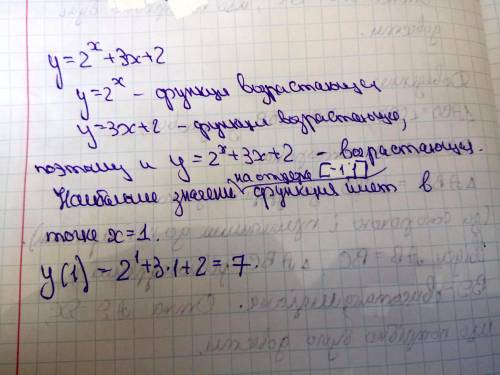 y=2ˣ+3x+2
y=2ˣ – функция возрастающая
y=3x+2 – функция возрастающая,
поэтому и y=2ˣ+3x+2 – возрастающая.
на отрезке [-1;1]
Наибольшее значение функция имеет в
точке x=1.
y(1) = 2¹+3·1+2=7.